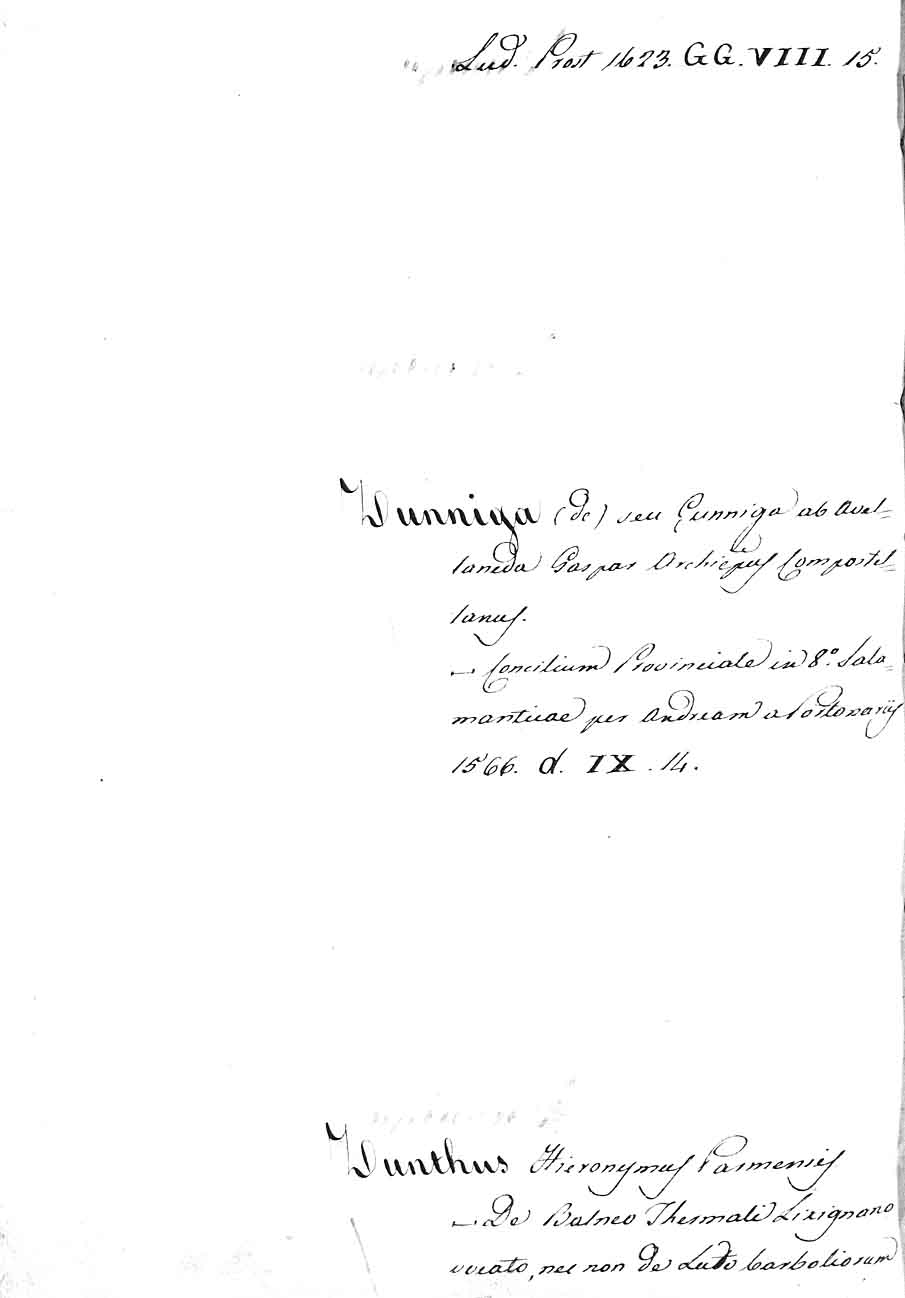 Lud. Prost 1623. GG. VIII. 15.
Zunniga (de) seu Çunniga ab Avel=
laneda Gaspar Archiepus Compostel=
lanus.
— Concilium Provinciale in 8.° Sala=
manticae per Andream a Portonariis
1566. d. IX. 14.
Zunthus Hieronymus Parmensis
— De Balneo Thermali Lixignano
vocato, nec non de Luto Carboliorum